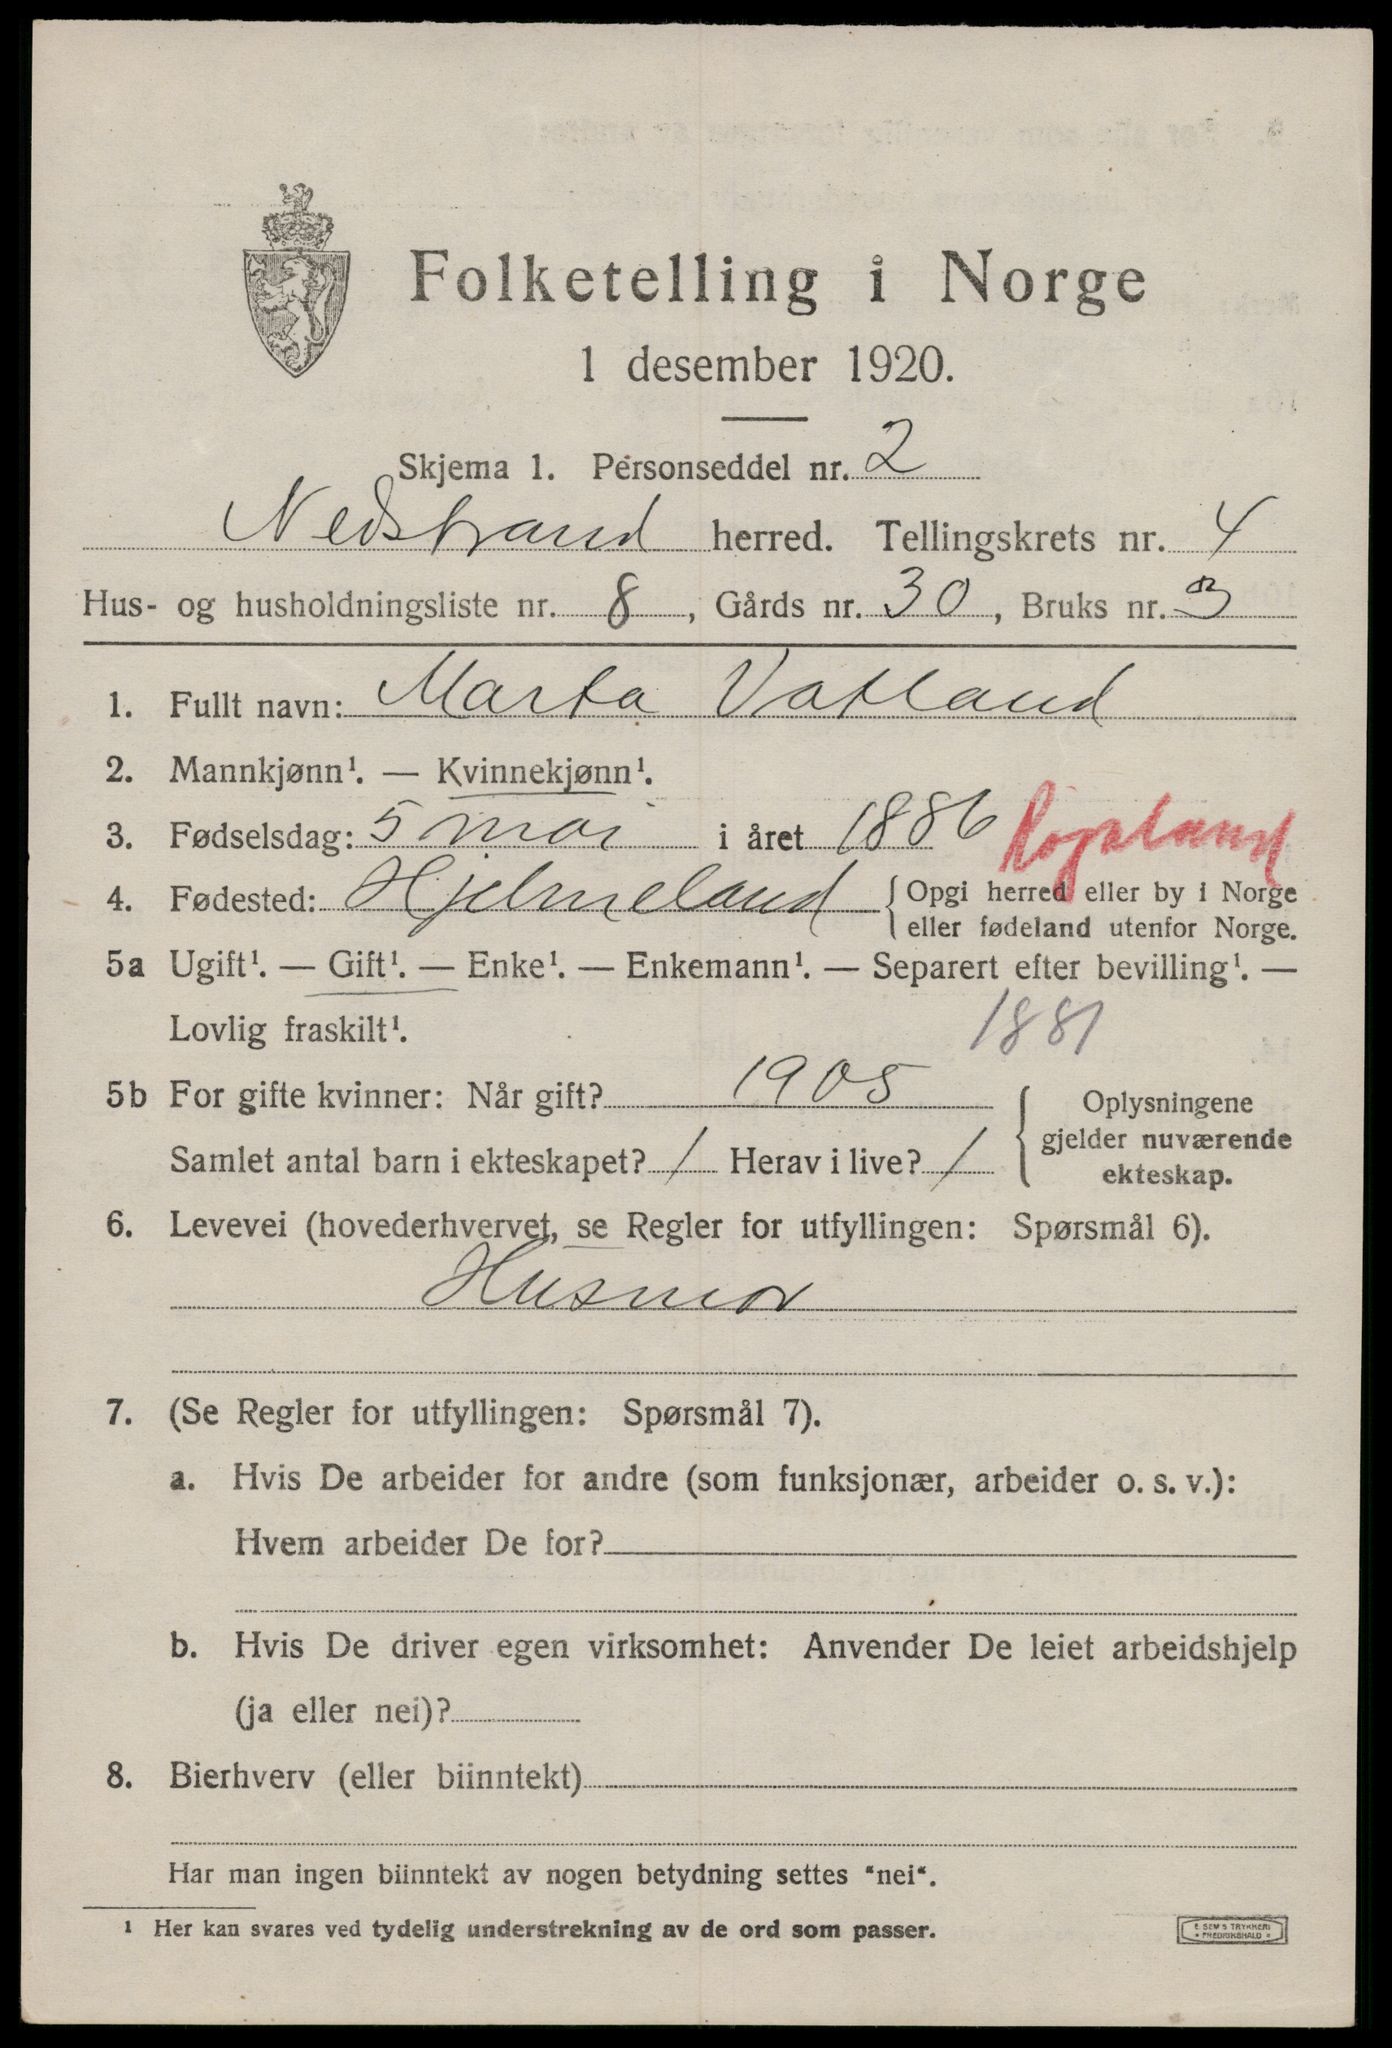 Folketelling i Norge
1 desember 1920.
Skjema 1. Personseddel nr. 2
Nedstrand herred. Tellingskrets nr. 4
Hus- og husholdningsliste nr. 8, Gårds nr. 30, Bruks nr. 3
1. Fullt navn: Marta Vatland
2. Mannkjønn¹. — Kvinnekjønn¹.
3. Fødselsdag: 5 mai i året 1886 Rogaland
4. Fødested: Hjelmeland { Opgi herred eller by i Norge
eller fødeland utenfor Norge.
5a Ugift¹. — Gift¹. — Enke¹. — Enkemann¹. — Separert efter bevilling¹. —
Lovlig fraskilt¹. 1881
5b For gifte kvinner: Når gift? 1905 { Oplysningene
gjelder nuværende
Samlet antal barn i ekteskapet? 1 Herav i live? 1
ekteskap.
6. Levevei (hovederhvervet, se Regler for utfyllingen: Spørsmål 6).
Husmor
7. (Se Regler for utfyllingen: Spørsmål 7).
a. Hvis De arbeider for andre (som funksjonær, arbeider o. s. v.):
Hvem arbeider De for?
b. Hvis De driver egen virksomhet: Anvender De leiet arbeidshjelp
(ja eller nei)?
8. Bierhverv (eller biinntekt)
Har man ingen biinntekt av nogen betydning settes "nei".
¹ Her kan svares ved tydelig understrekning av de ord som passer.
E. SEM'S TRYKKERI
FREDRIKSHALD